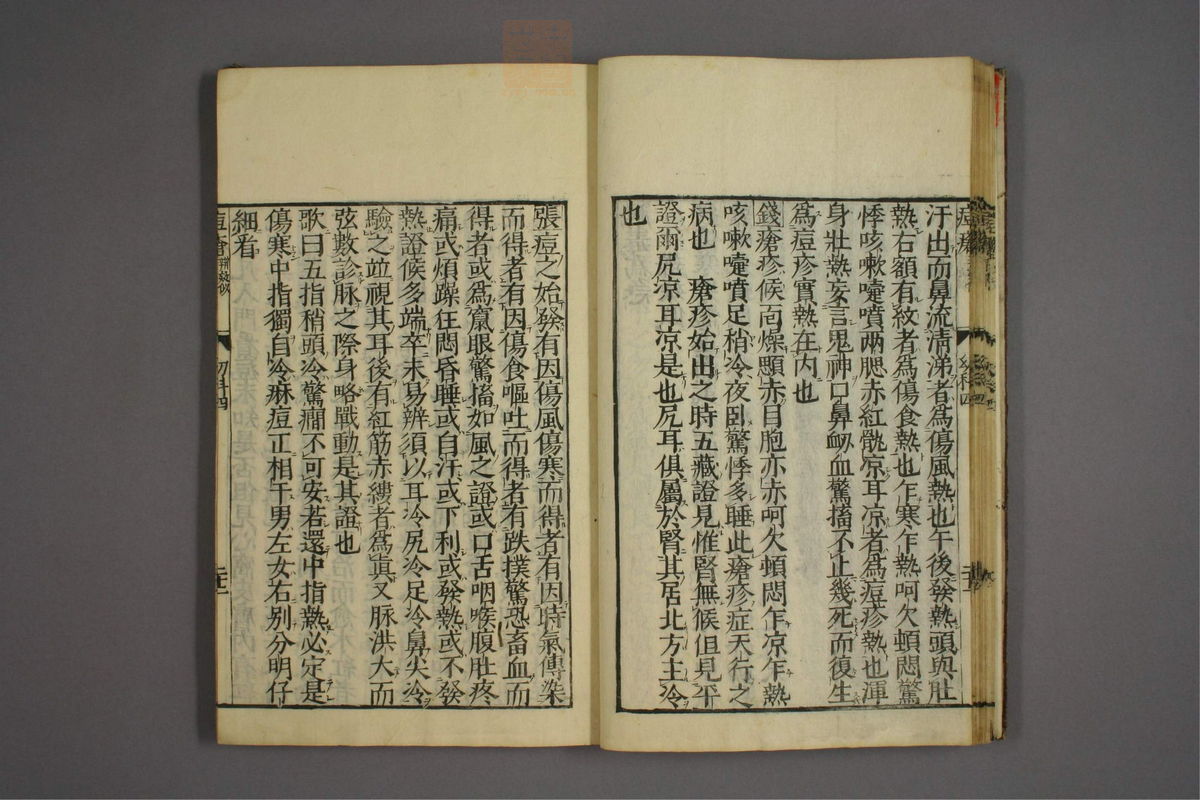 汗出而鼻流清涕者為傷風熱也午後發熱頭與肚
熱右額有紋者為傷食熱也乍寒乍熱呵欠頓悶驚
悸咳嗽嚏噴兩腮赤紅骩凉耳凉者為痘疹熱也渾
身壯熱妄言鬼神口鼻衂血驚搐不止幾死而復生
為痘疹實熱在内也
錢瘡疹候靣燥顋赤目胞亦赤呵欠頓悶乍凉乍熱
咳嗽嚏噴足稍冷夜卧驚悸多睡此瘡疹症天行之
病也　瘡疹始出之時五藏證見惟腎無候但見平
證爾尻凉耳凉是也尻耳俱屬於腎其居北方主冷
也
張痘之始發有因傷風傷寒而得者有因時氣傳染
而得者有因傷食嘔吐而得者有跌撲驚恐畜血而
得者或為竄眼驚搐如風之證或口舌咽喉腹肚疼
痛或煩躁狂悶昏睡或自汗或下利或發熱或不發
熱證候多端卒未易辨須以耳冷尻冷足冷鼻尖冷
驗之並視其耳後有紅筋赤縷者為真又脉洪大而
弦數診脉之際身略戰動是其證也
歌曰五指稍頭冷驚癇不可安若還中指熱必定是
傷寒中指獨自冷麻痘正相干男左女右别分明仔
細看
痘瘡
幼科四